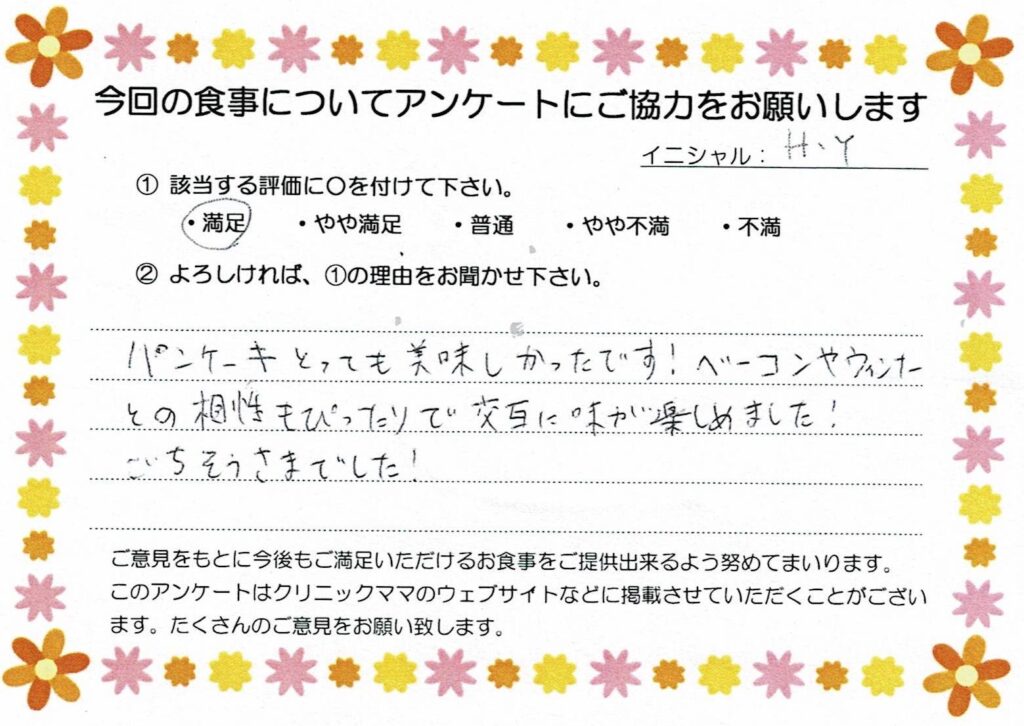 今回の食事についてアンケートにご協力をお願いします
イニシャル： H.Y
① 該当する評価に〇を付けて下さい。
・満足 ・やや満足 ・普通 ・やや不満 ・不満
② よろしければ、①の理由をお聞かせ下さい。
パンケーキとっても美味しかったです！ベーコンやウィンナー
との相性もぴったりで交互に味が楽しめました！
ごちそうさまでした！
ご意見をもとに今後もご満足いただけるお食事をご提供出来るよう努めてまいります。
このアンケートはクリニックママのウェブサイトなどに掲載させていただくことがござい
ます。たくさんのご意見をお願い致します。